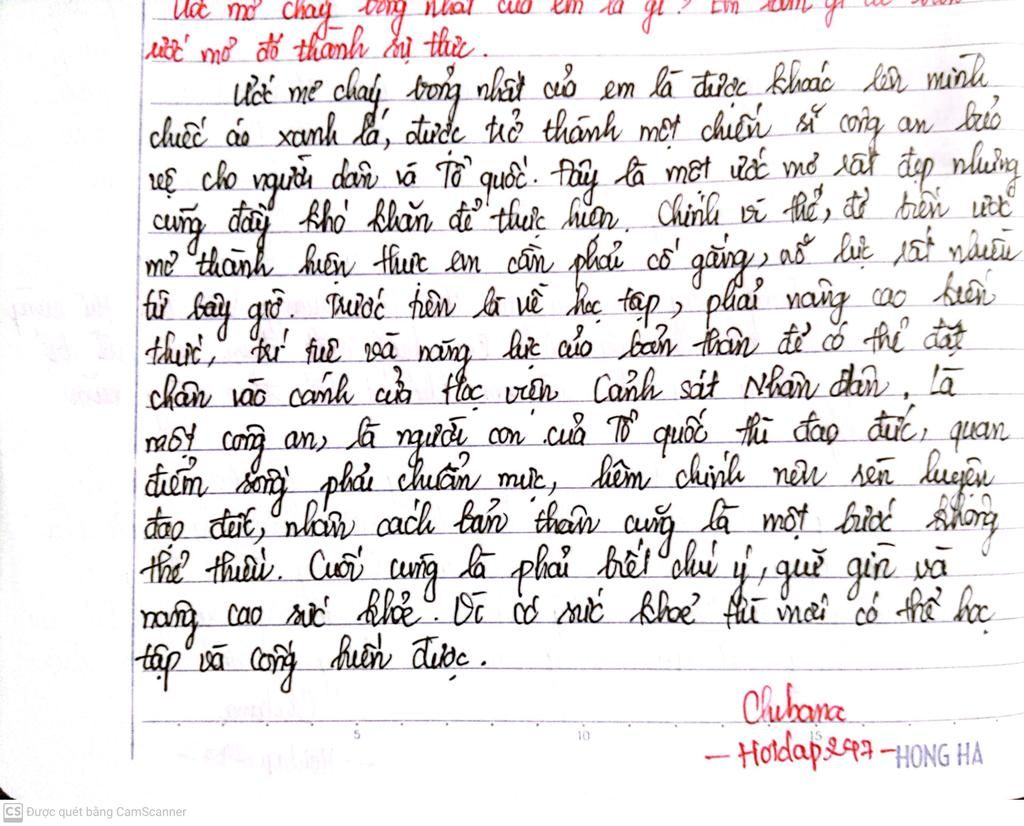 Ước mơ cháy bỏng nhất của em là gì? Em làm gì để biến
ước mơ đó thành sự thực.
Ước mơ cháy bỏng nhất của em là được khoác lên mình
chiếc áo xanh lá, được trở thành một chiến sĩ công an bảo
vệ cho người dân và Tổ quốc. Đây là một ước mơ rất đẹp nhưng
cũng đầy khó khăn để thực hiện. Chính vì thế, để biến ước
mơ thành hiện thực em cần phải cố gắng, nỗ lực rất nhiều
từ bây giờ. Trước tiên là về học tập, phải nâng cao kiến
thức, trí tuệ và năng lực của bản thân để có thể đặt
chân vào cánh cửa Học viện Cảnh sát Nhân dân. Là
một công an, là người con của Tổ quốc thì đạo đức, quan
điểm sống phải chuẩn mực, liêm chính nên rèn luyện
đạo đức, nhân cách bản thân cũng là một bước không
thể thiếu. Cuối cùng là phải biết chú ý, giữ gìn và
nâng cao sức khỏe. Vì có sức khoẻ thì mới có thể học
tập và cống hiến được.
Chibana
- Hoidap247 - HONG HA
5 10 15
CS Được quét bằng CamScanner